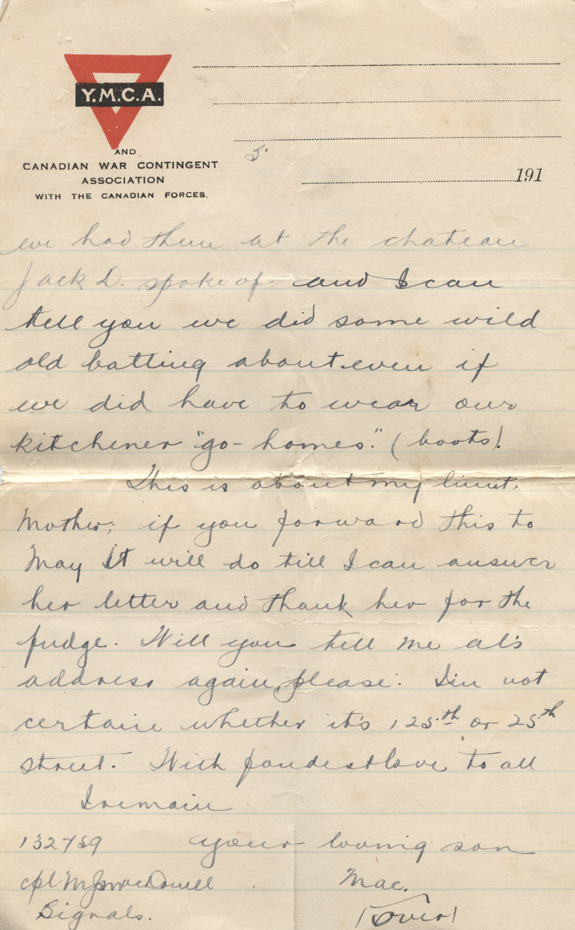 Y.M.C.A.
AND
CANADIAN WAR CONTINGENT
ASSOCIATION
WITH THE CANADIAN FORCES.
5.
191
we had them at the chateau
Jack D. spoke of and I can
tell you we did some wild
old batting about even if
we did have to wear our
kitchener "go-homes." (boots!
This is about my limit,
Mother; if you forward this to
May it will do till I can answer
her letter and thank her for the
fudge. Will you tell me al's
address again, please. I'm not
certain whether it's 125th or 25th
street. With fondest love to all
I remain
your loving son
132739
Mac.
Cpl M J MacDowell
Signals.
(over)